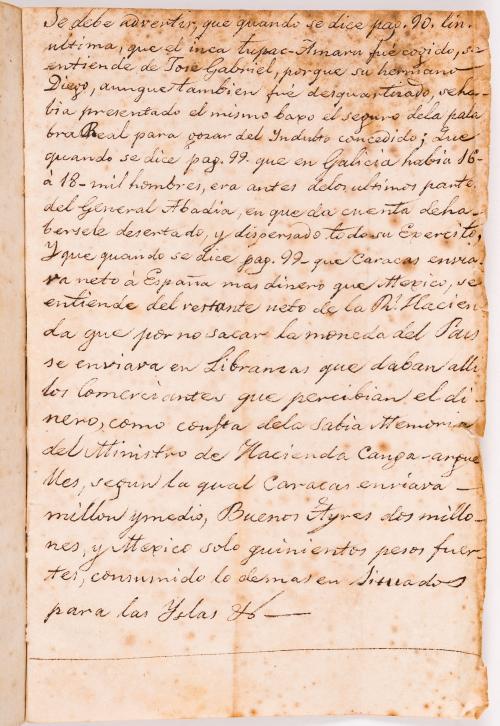 Se debe advertir, que quando se dice pag. 90. lin.
ultima, que el inca Tupac-Amaru fué cogido, se
entiende de José Gabriel, porque su hermano
Diego, aunque tambien fué desquartizado, se ha-
bia presentado el mismo baxo el seguro dela pala
bra Real para gozar del Indulto concedido; Que
quando se dice pag. 99. que en Galicia habia 16-
á 18-mil hombres, era antes delos ultimos parte.
del General Abadia, en que da cuenta deha-
bersele desertado, y dispersado todo su Exercito,
Y que quando se dice pag. 99. que Caracas envia-
va neto á España mas dinero que Mexico, se
entiende del restante neto de la Rl. Hacien-
da que por no sacar la moneda del Pais
se enviava en Libranzas que daban alli
los Comerciantes que percibian el di-
nero, como consta dela Sabia Memoria
del Ministro de Hacienda Canga-argue
lles, segun la qual Caracas enviava
millon y medio, Buenos Ayres dos millo-
nes, y Mexico solo quinientos pesos fuer-
tes, consumido lo demas en Situados
para las Yslas &